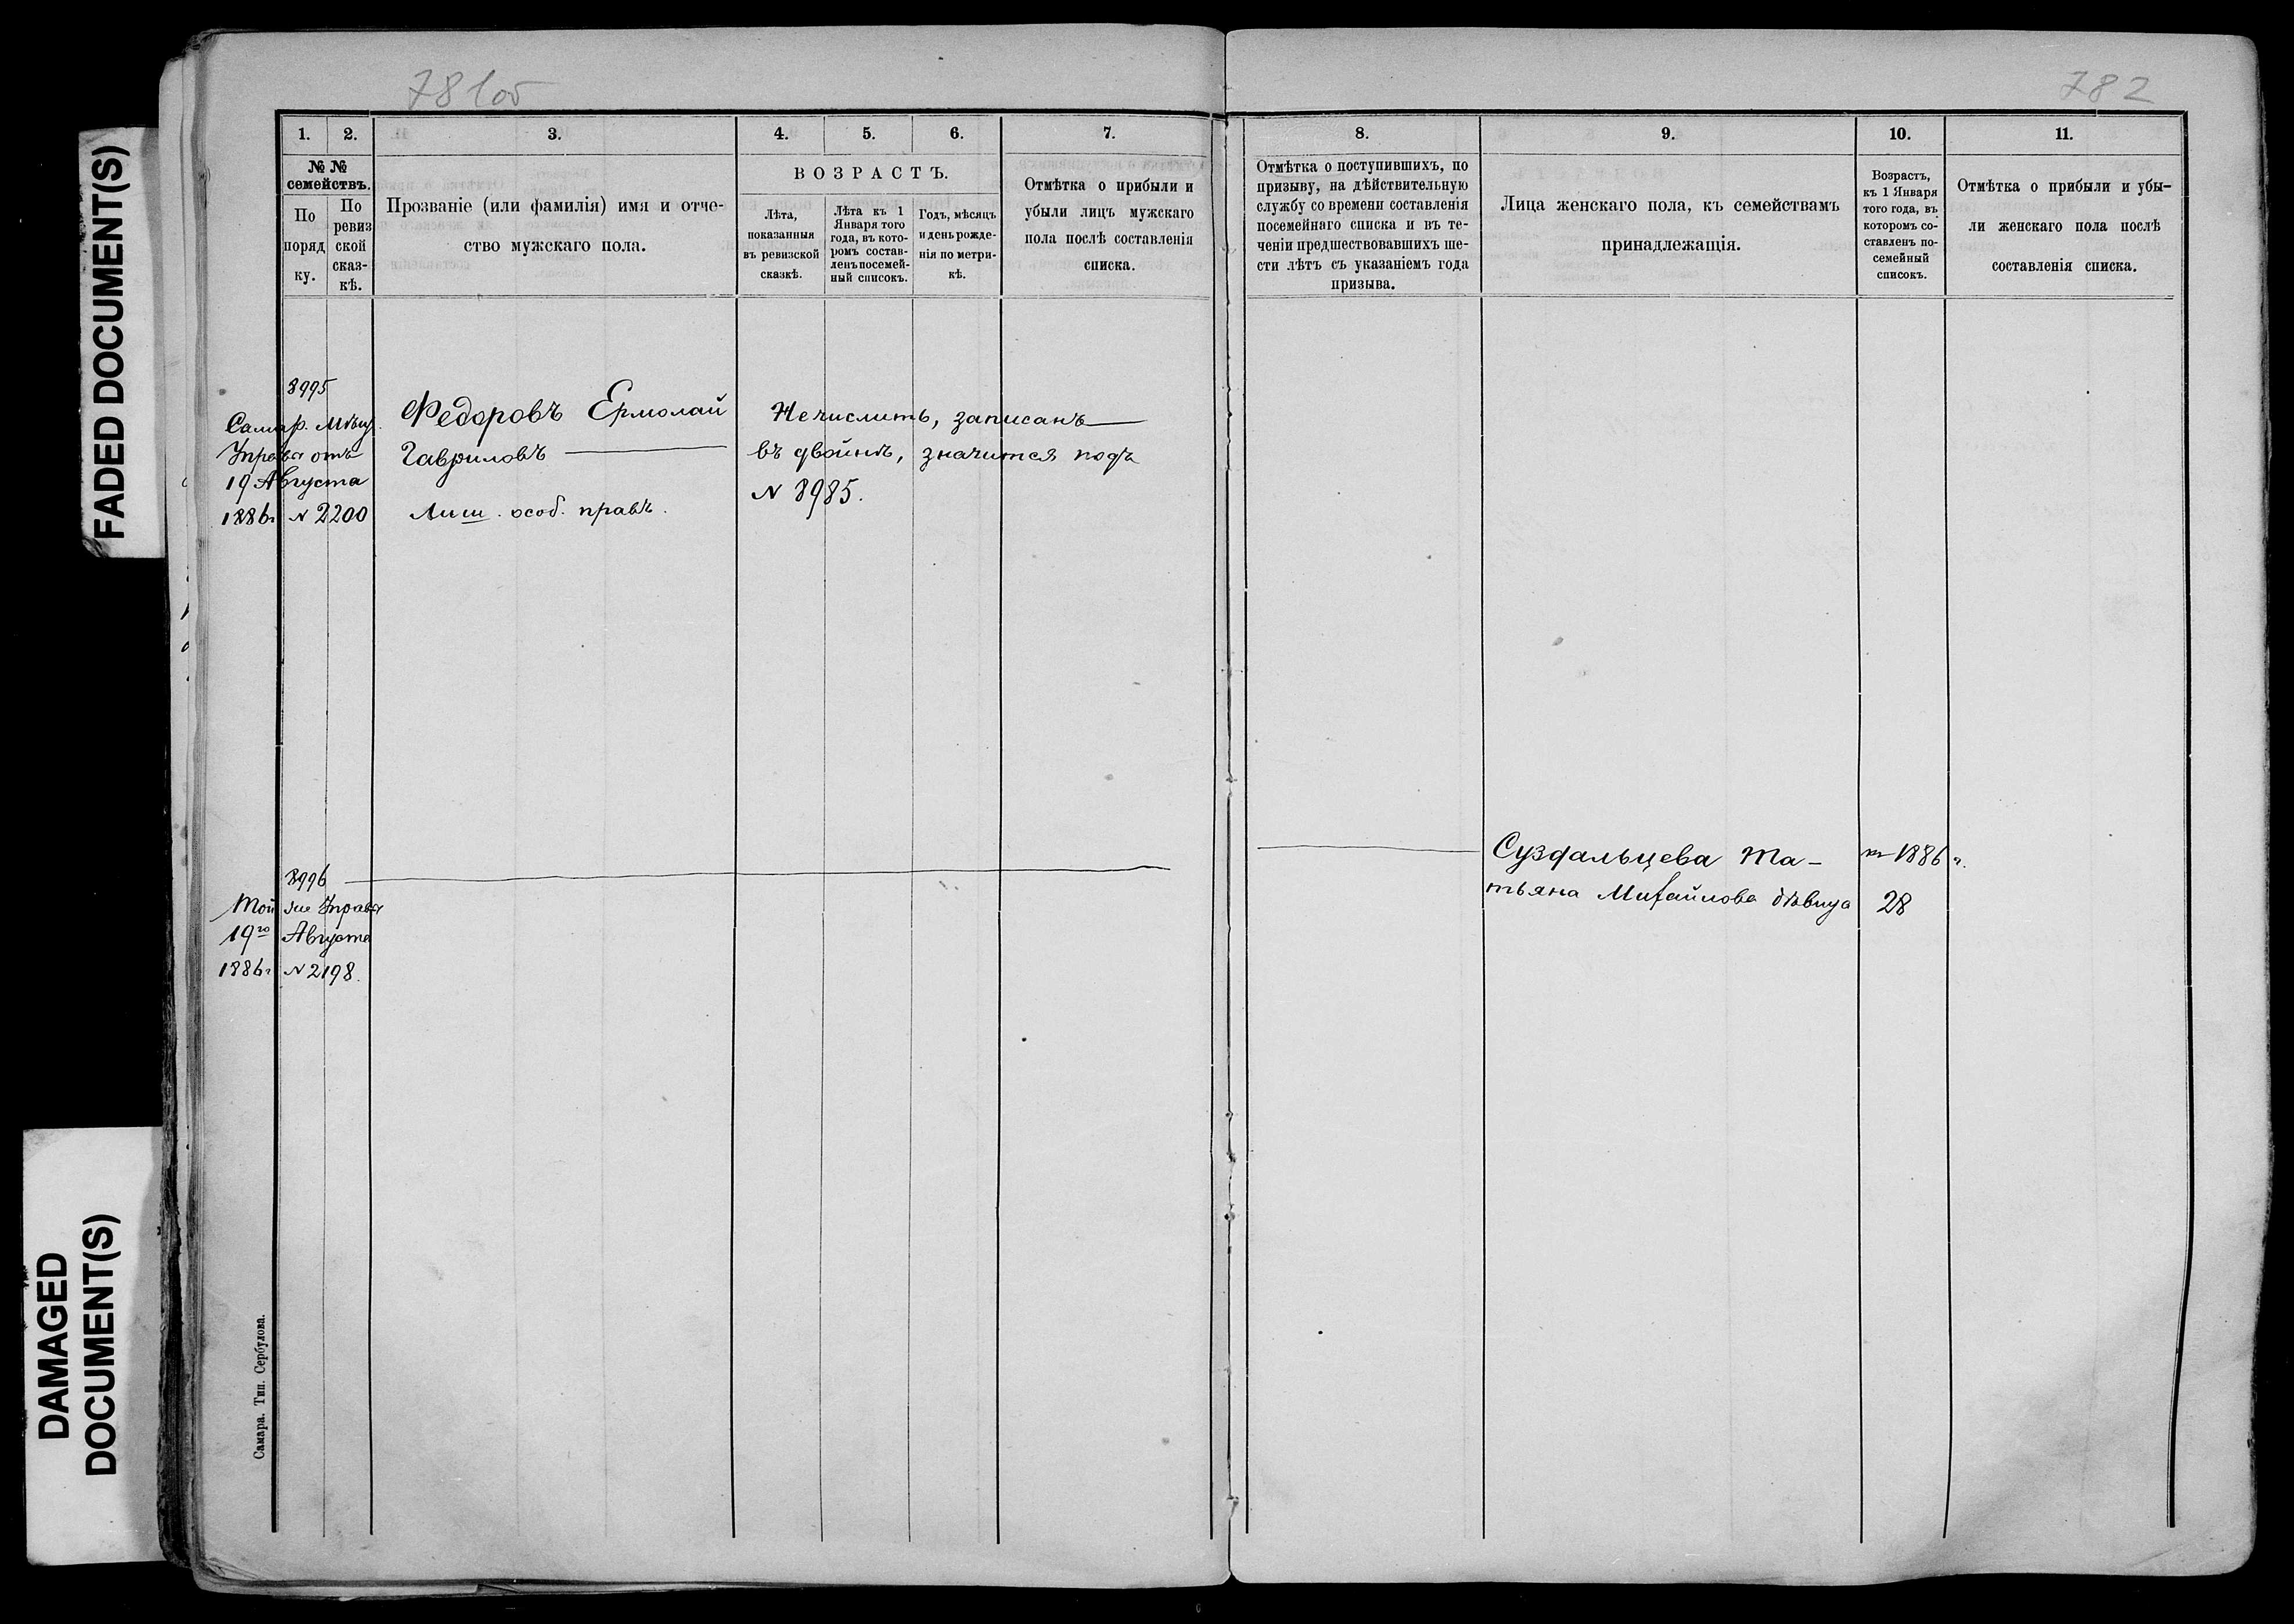 FADED DOCUMENT(S)
DAMAGED
DOCUMENT(S)
781об
782
1.
2.
3.
4.
5.
6.
7.
№ №
семействъ.
По
поряд
ку.
По
ревиз
ской
сказ-
кѣ.
Прозваніе (или фамилія) имя и отче-
ство мужскаго пола.
ВОЗРАСТЪ.
Лѣта,
показанныя
въ ревизской
сказкѣ.
Лѣта къ 1
Января того
года, въ кото-
ромъ состав-
ленъ посемей-
ный списокъ.
Годъ, мѣсяцъ
и день рожде-
нія по метри-
кѣ.
Отмѣтка о прибыли и
убыли лицъ мужскаго
пола послѣ составленія
списка.
8.
9.
10.
11.
Отмѣтка о поступившихъ, по
призыву, на дѣйствительную
службу со времени составленія
посемейнаго списка и въ те-
ченіи предшествовавшихъ ше-
сти лѣтъ съ указаніемъ года
призыва.
Лица женскаго пола, къ семействамъ
принадлежащія.
Возрастъ,
къ 1 Января
того года, въ
которомъ со-
ставленъ по-
семейный
списокъ.
Отмѣтка о прибыли и убы-
ли женскаго пола послѣ
составленія списка.
8995
Самар. Мѣщ.
Управа отъ
19 Августа
1886г N 2200
Федоровъ Ермолай
Гавриловъ
Лиш. особ. правъ.
Не числить, записанъ
въ двойнѣ, значится подъ
N 8985.
8996
Той же Управы
19го Августа
1886г N 2198.
Суздальцева Та-
тьяна Михайлова дѣвица
къ 1886 г.
28
Самара. Тип. Сербулова.